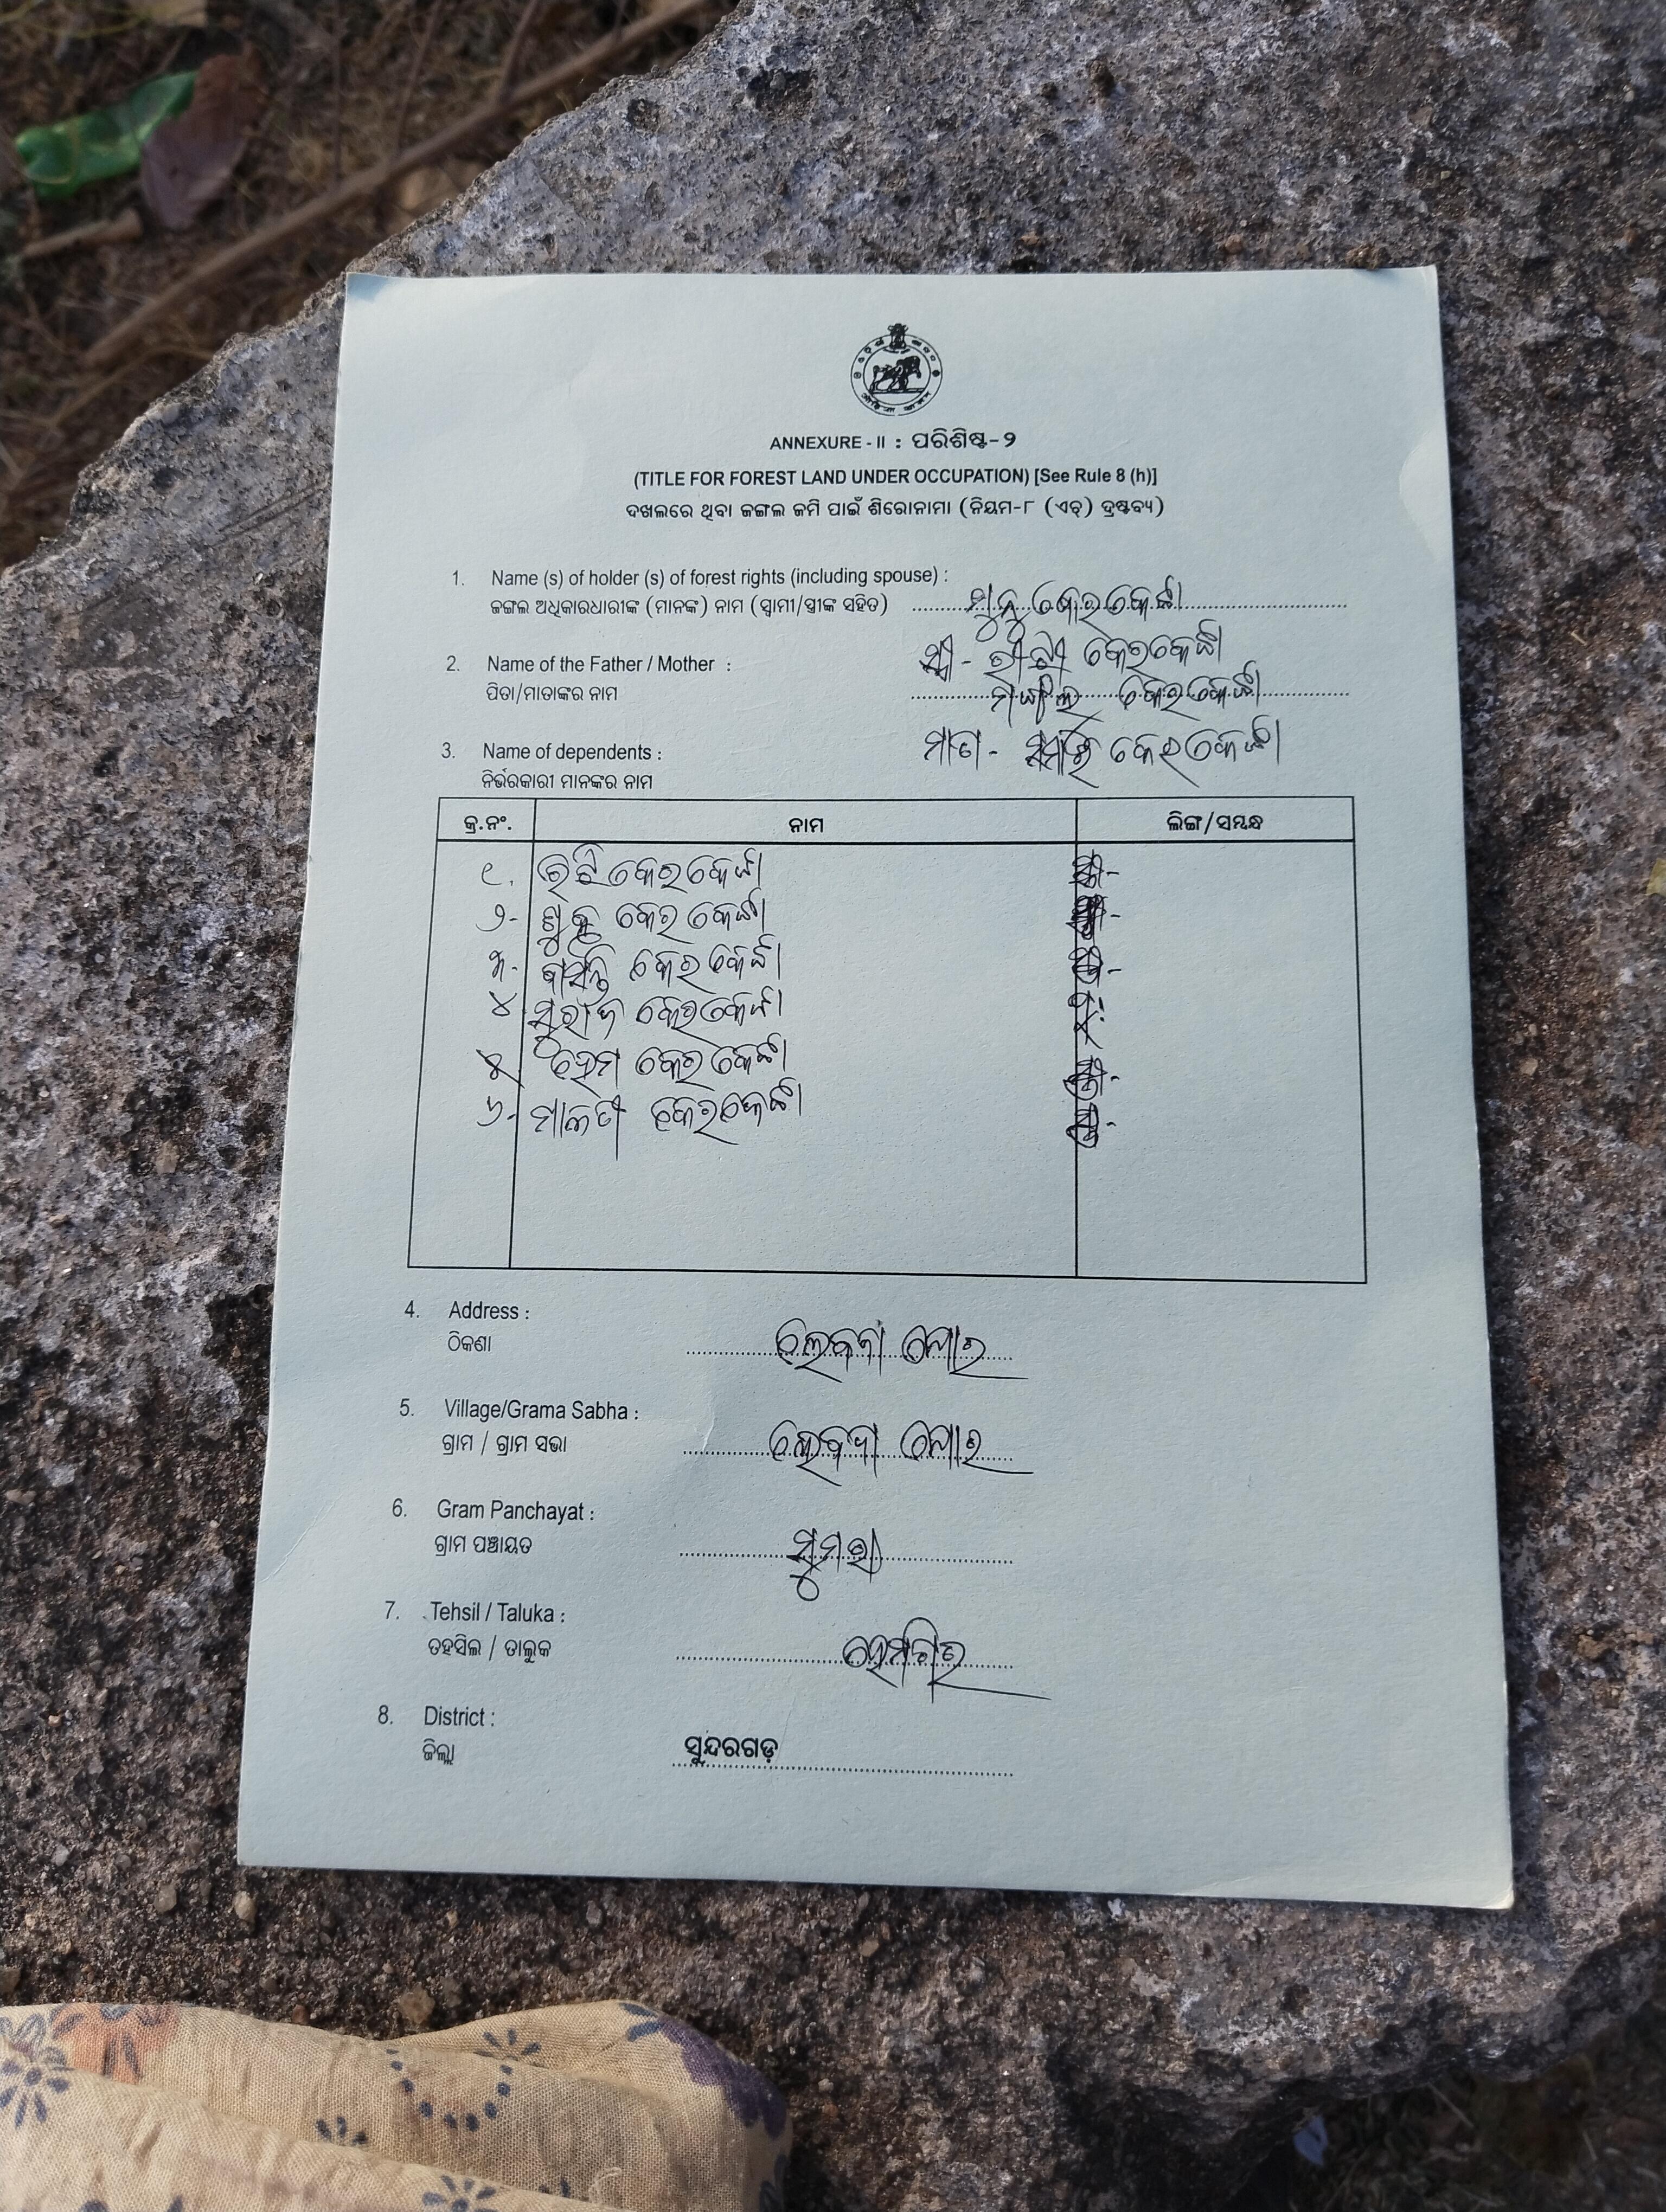 ANNEXURE - II : ପରିଶିଷ୍ଟ-୨
(TITLE FOR FOREST LAND UNDER OCCUPATION) [See Rule 8 (h)]
ଦଖଲରେ ଥିବା ଜଙ୍ଗଲ ଜମି ପାଇଁ ଶିରୋନାମା (ନିୟମ-୮ (ଏଚ୍) ଦ୍ରଷ୍ଟବ୍ୟ)
1. Name (s) of holder (s) of forest rights (including spouse) :
ଜଙ୍ଗଲ ଅଧିକାରଧାରୀଙ୍କ (ମାନଙ୍କ) ନାମ (ସ୍ୱାମୀ/ସ୍ତ୍ରୀଙ୍କ ସହିତ) କେରକେଟା
ସ୍ତ୍ରୀ - କେରକେଟା
2. Name of the Father / Mother :
ପିତା/ମାତାଙ୍କର ନାମ କେରକେଟା
ମାତା - କେରକେଟା
3. Name of dependents :
ନିର୍ଭରକାରୀ ମାନଙ୍କର ନାମ
କ୍ର.ନଂ. ନାମ ଲିଙ୍ଗ/ସମ୍ବନ୍ଧ
୧. କେରକେଟା ସ୍ତ୍ରୀ-
୨- କେରକେଟା
୩- ବାସନ୍ତି କେରକେଟା
୪ ସୁରାଜ କେରକେଟା ପୁ:
୫ ହେମ କେରକେଟା
୬- ମାଳତୀ କେରକେଟା
4. Address :
ଠିକଣା
5. Village/Grama Sabha :
ଗ୍ରାମ / ଗ୍ରାମ ସଭା
6. Gram Panchayat :
ଗ୍ରାମ ପଞ୍ଚାୟତ
7. Tehsil / Taluka :
ତହସିଲ / ତାଲୁକ ହେମଗିର
8. District :
ଜିଲ୍ଲା ସୁନ୍ଦରଗଡ଼